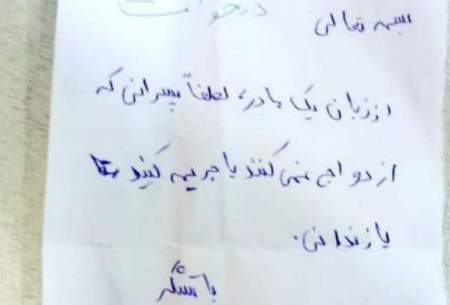 درخواست
بسمه تعالی
از زبان یک مادر، لطفاً پسرانی که
ازدواج نمی کنند یا جریمه کنید
یا زندانی.
با تشکر